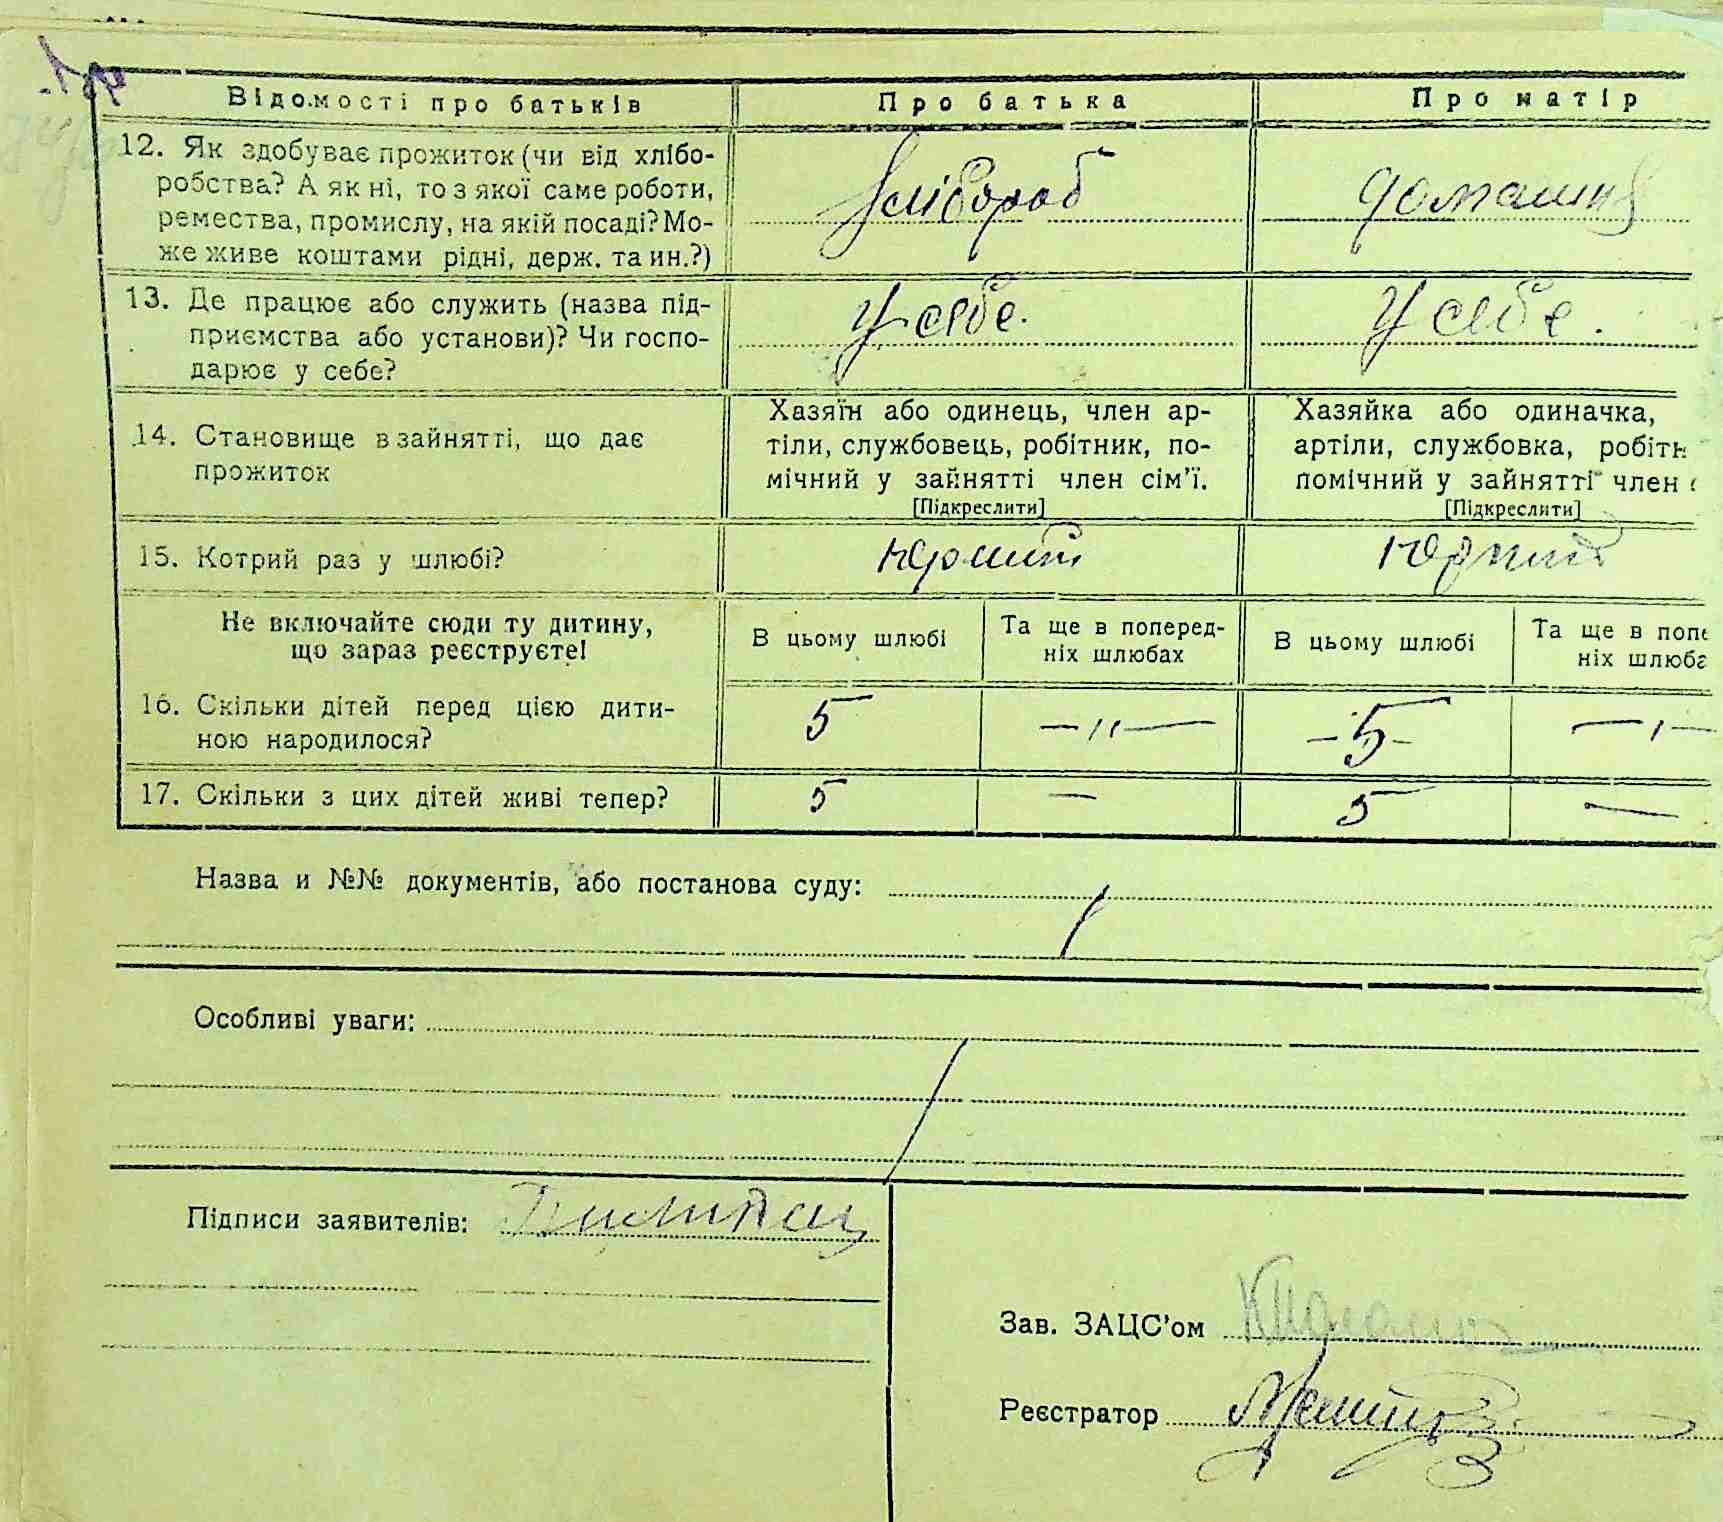 Відомості про батьків Про батька Про матір
12. Як здобуває прожиток (чи від хлібо-
робства? А як ні, то з якої саме роботи,
ремества, промислу, на якій посаді? Мо-
же живе коштами рідні, держ. та ин.?)
Хлібороб
домашня
13. Де працює або служить (назва під-
приємства або установи)? Чи госпо-
дарює у себе?
У себе.
У себе.
14. Становище в зайнятті, що дає
прожиток
Хазяїн або одинець, член ар-
тіли, службовець, робітник, по-
мічний у зайнятті член сім'ї.
[Підкреслити]
Хазяйка або одиначка,
артіли, службовка, робітн
помічний у зайнятті член
[Підкреслити]
15. Котрий раз у шлюбі?
Не включайте сюди ту дитину,
що зараз реєструєте!
В цьому шлюбі
Та ще в поперед-
ніх шлюбах
В цьому шлюбі
Та ще в попе
ніх шлюба
16. Скільки дітей перед цією дити-
ною народилося?
5 —〃— -5- —〃—
17. Скільки з цих дітей живі тепер?
5 — 5 —
Назва и №№ документів, або постанова суду:
Особливі уваги:
Підписи заявителів:
Зав. ЗАЦС'ом
Реєстратор